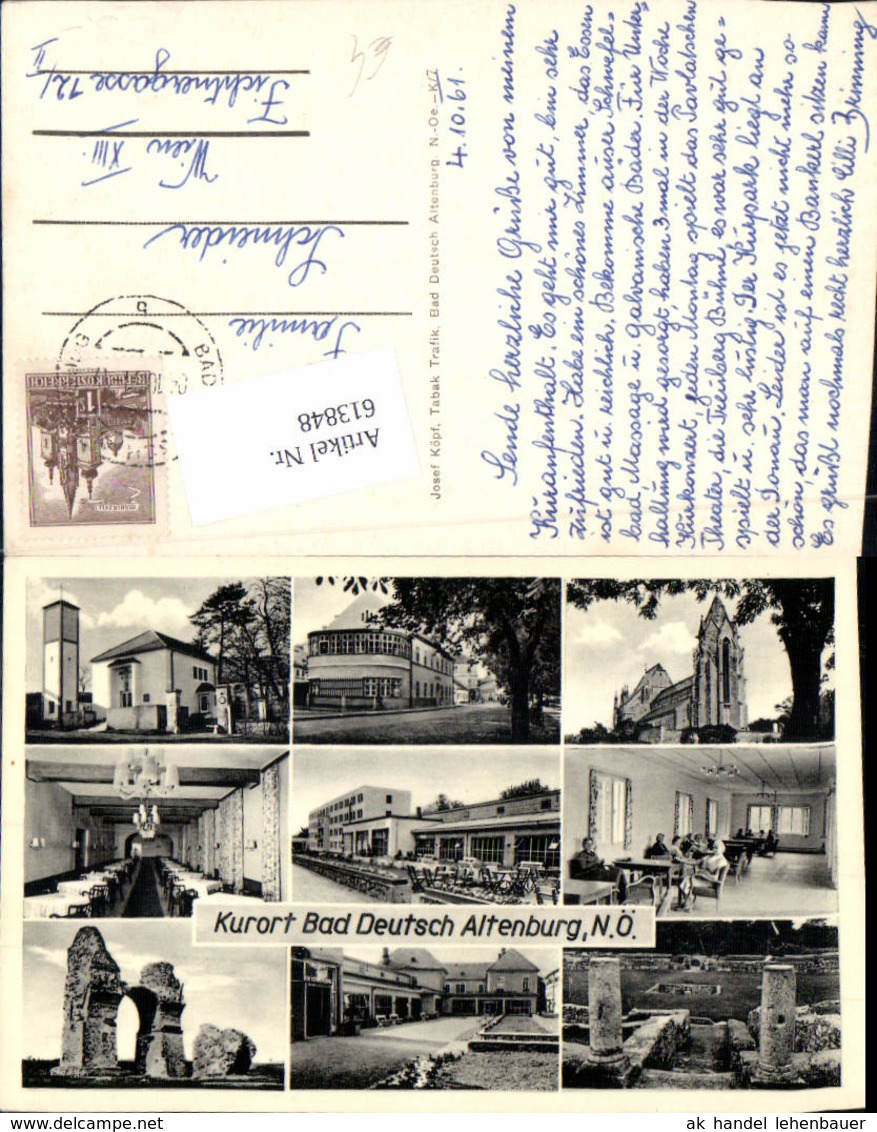 4.10.61.
Sende herzliche Grüße von meinen
Kuraufenthalt. Es geht mir gut, bin sehr
zufrieden. Habe ein schönes Zimmer das Essen
ist gut u. reichlich. Bekomme auser Schwefel=
bad, Massage u. Galvanische Bäder. Für Unter=
haltung wird gesorgt haben 3 mal in der Woche
Kurkonzert, jeden Montag spielt das Pawlatschen
Theater, die Treuberg Bühne, es war sehr gut ge=
spielt u. sehr lustig. Der Kurpark liegt an
der Donau, Leider ist es jetzt nicht mehr so
schön, das man auf einen Bankerl sitzen kann
Es grüßt nochmals recht herzlich Lilli
Josef Köpf, Tabak Trafik, Bad Deutsch Altenburg. N.-Oe.—K/7
Familie
Schneider
Wien XIII.
Fichtnergasse 12/
II
REPUBLIK ÖSTERREICH
1
MARIAZELL
BAD
b
Artikel Nr.
613848
Kurort Bad Deutsch Altenburg, N.Ö.
ak handel lehenbauer